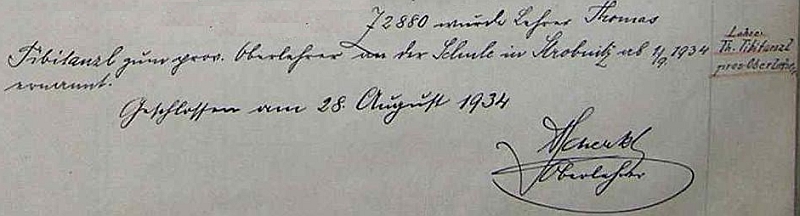 72880 wurde Lehrer Thomas
Tibitanzl zum prov. Oberlehrer an der Schule in Strobnitz ab 1/9 1934
ernannt.
Geschlossen am 28. August 1934
Oberlehrer
Lehrer
Th. Tibitanzl
prov. Oberlehrer